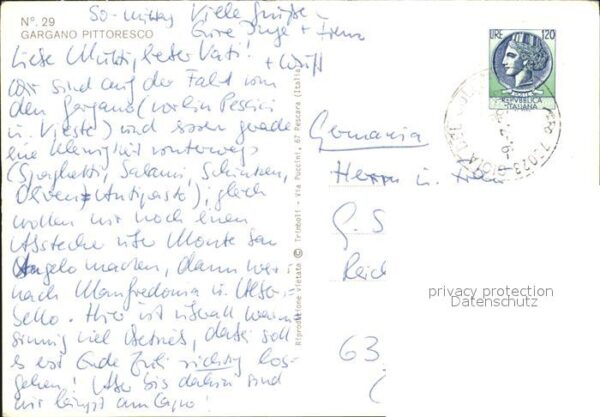 Nº. 29
GARGANO PITTORESCO
So-mittag Viele Grüße
Eure Inge +
Liebe Mutti, lieber Vati!
wir sind auf der Fahrt von
den Gargano (vorbei Peschici
u. Vieste) und essen gerade
eine Kleinigkeit unterwegs
(Spaghetti, Salami, Schinken,
Oliven = Antipasto), gleich
wollen wir noch einen
Abstecher über Monte San
Angelo machen, dann weiter
nach Manfredonia u.
Hier ist überall wahn-
sinnig viel Betrieb, dabei soll
es erst Ende Juli richtig los-
gehen! Aber bis dahin sind
wir längst am Capo!
Riproduzione vietata © Trimboli - Via Puccini, 67 Pescara (Italia)
LIRE 120
REPVBBLICA
ITALIANA
Germania
Herrn u. Frau
G. S
Reich
63
privacy protection
Datenschutz